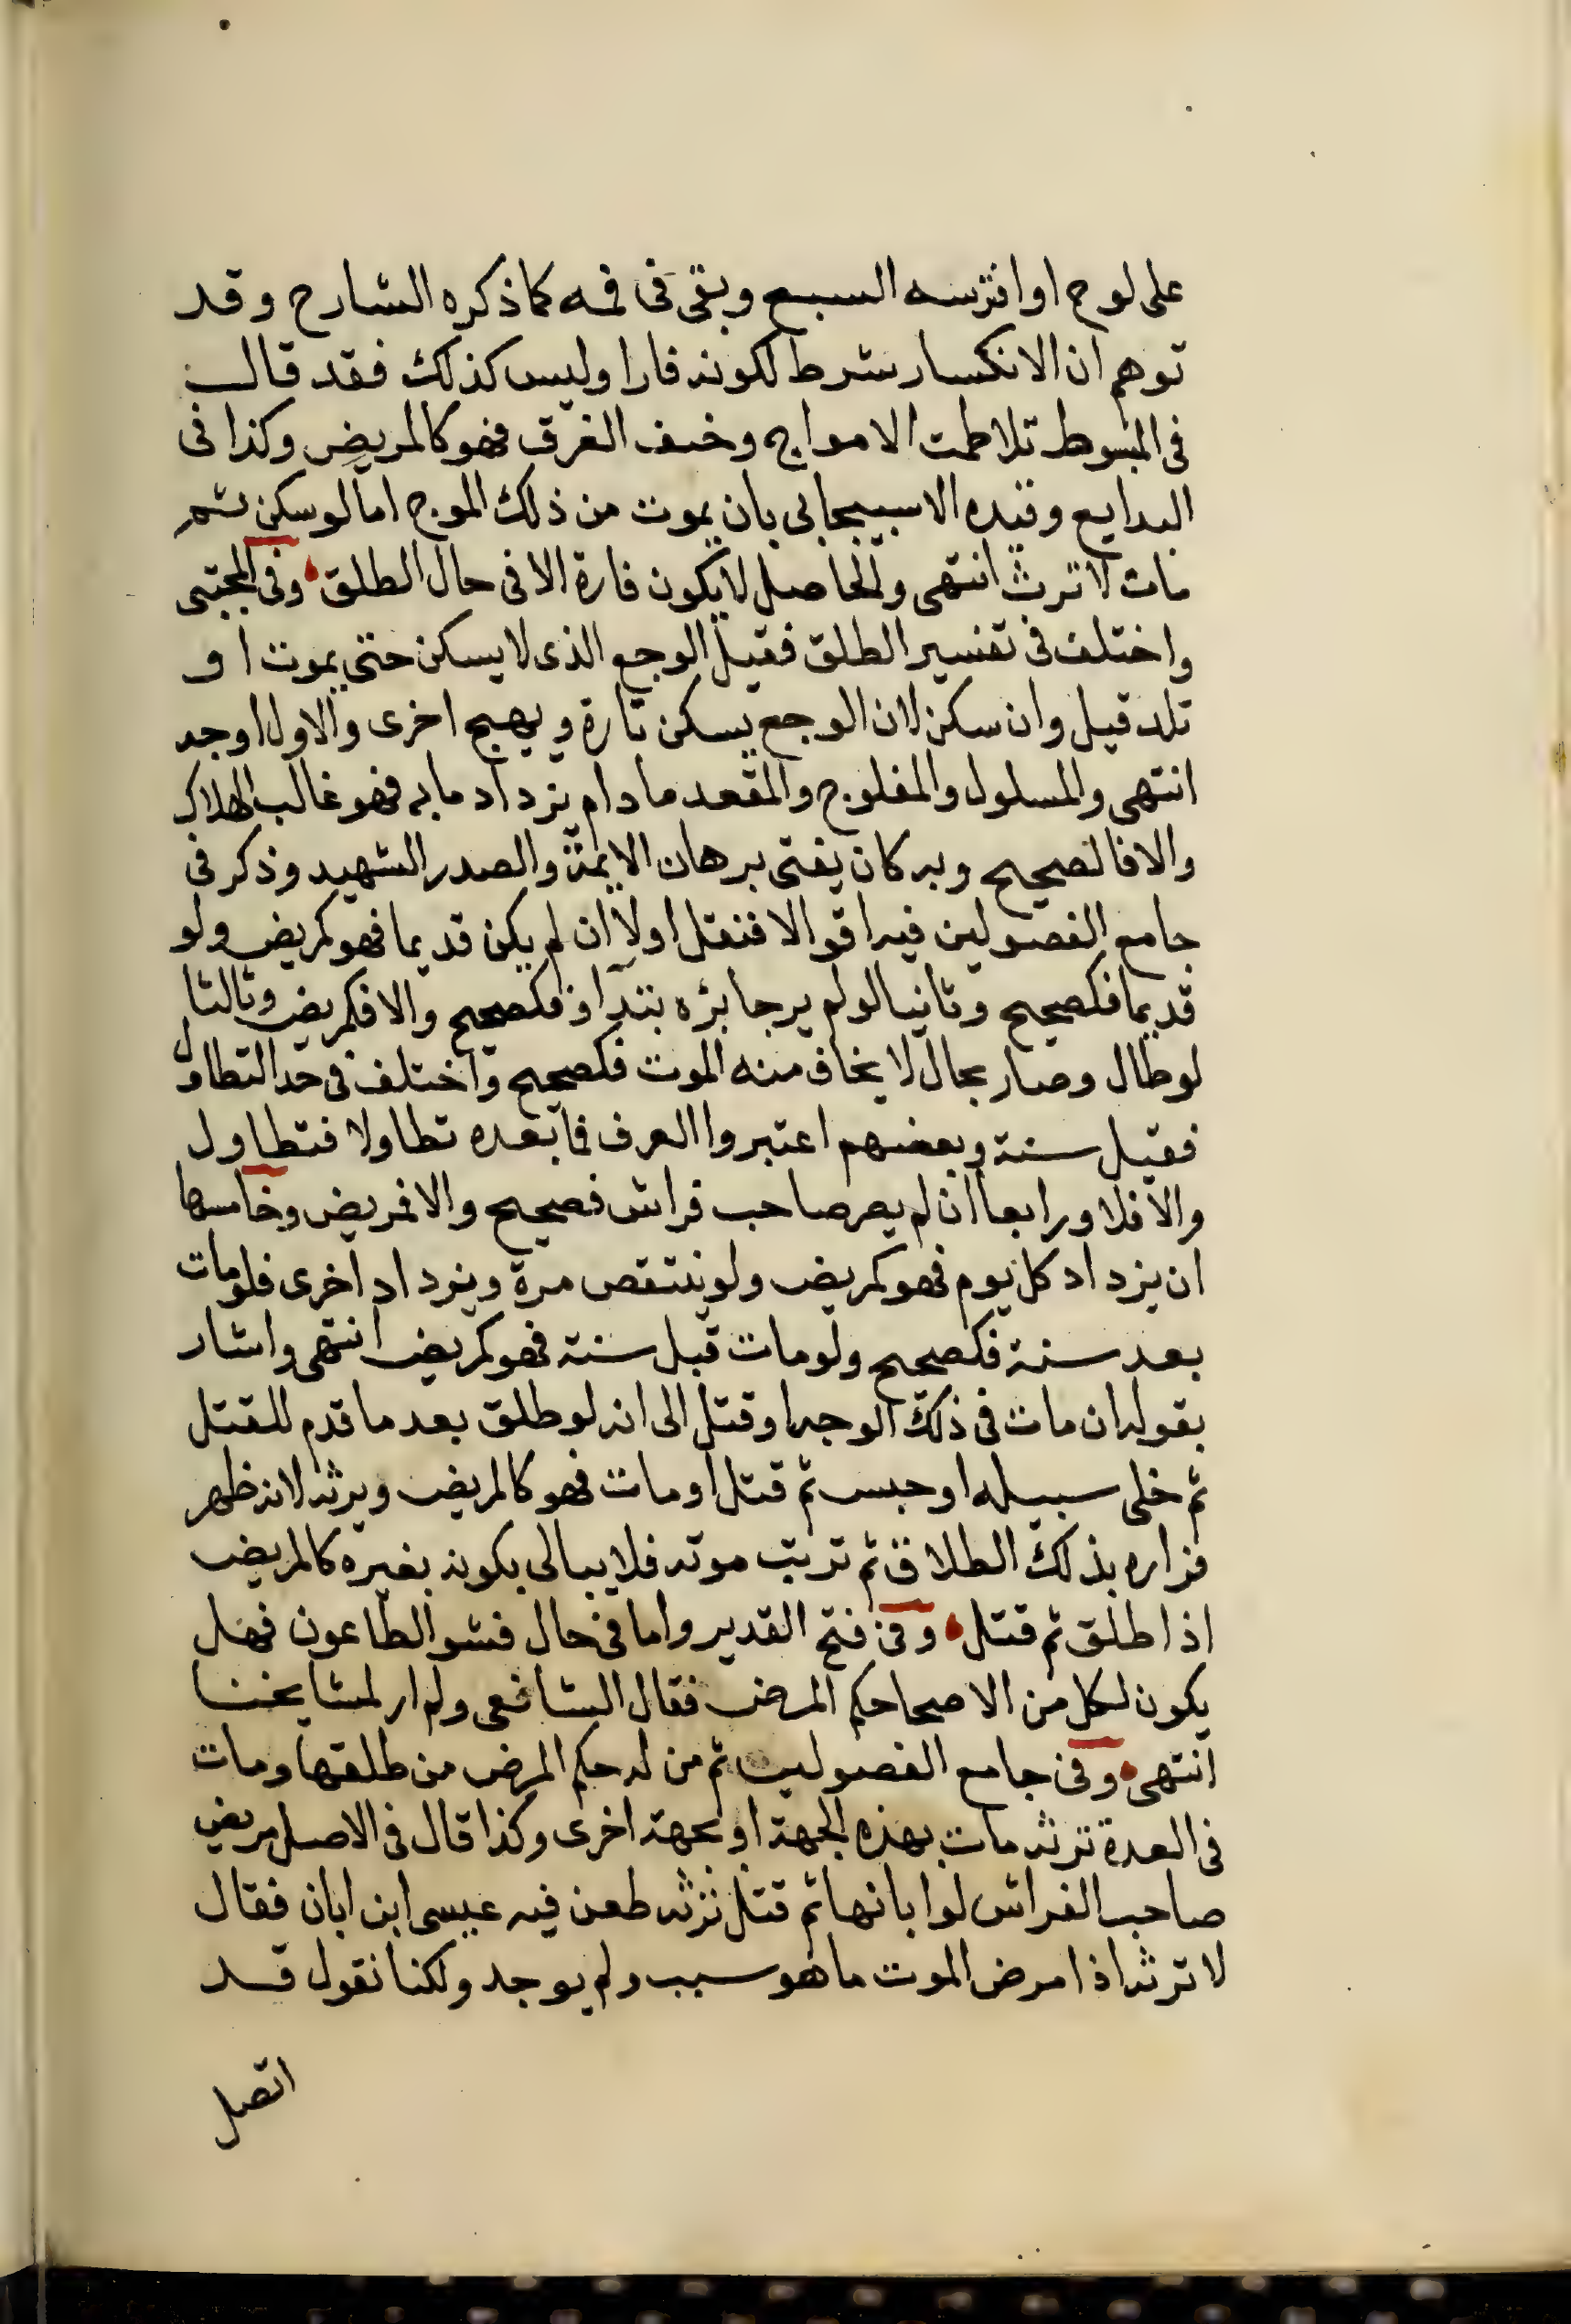 على لوح او افترسه السبع وبقى فى فمه كما ذكره الشارح وقد
توهم ان الانكسار شرط لكونه فارا وليس كذلك فقد قال
فى المبسوط تلاطمت الامواج وخيف الغرق فهو كالمريض وكذا فى
البدايع وقيده الاسبيجابى بان يموت من ذلك الموج اما لو سكن ثم
مات لا ترث انتهى والحاصل لا يكون فارة الا فى حال الطلق وفى المجتبى
واختلف فى تفسير الطلق فقيل الوجع الذى لا يسكن حتى يموت او
تلد قيل وان سكن لان الوجع يسكن تارة ويهيج اخرى والاول اوجه
انتهى والمسلول والمفلوج والمقعد مادام يزداد مابه فهو غالب الهلاك
والا فالصحيح وبه كان يفتى برهان الايمة والصدر الشهيد وذكر فى
جامع الفصولين فيه اقوالا فنقل اولا ان لم يكن قديما فهو كمريض ولو
قديما فكصحيح وثانيا لو لم يرجا برؤه بتداو فكصحيح والا فكمريض وثالثا
لو طال وصار بحال لا يخاف منه الموت فكصحيح واختلف فى حد التطاول
فقيل سنة وبعضهم اعتبروا العرف فما بعده تطاولا فتطاول
والا فلا ورابعا ان لم يصر صاحب فراش فصحيح والا فمريض وخامسها
ان يزداد كل يوم فهو كمريض ولو ينتقص مرة ويزداد اخرى فلو مات
بعد سنة فكصحيح ولو مات قبل سنة فهو كمريض انتهى واشار
بقوله ان مات فى ذلك الوجه او قتل الى انه لو طلق بعد ما قدم للقتل
ثم خلى سبيله او حبس ثم قتل او مات فهو كالمريض ويرثه لانه ظهر
فراره بذلك الطلاق ثم ترتب موته فلا يبالى بكونه بغيره كالمريض
اذا طلق ثم قتل وفى فتح القدير واما فى حال فشو الطاعون فهل
يكون لكل من الاصحا حكم المرض فقال الشافعى ولم ار لمشايخنا
انتهى وفى جامع الفصولين ثم من له حكم المرض من طلقها ومات
فى العدة ترثه مات بهذه الجهة او بجهة اخرى وكذا قال فى الاصل مريض
صاحب الفراش لو ابانها ثم قتل ترثه طعن فيه عيسى ابن ابان فقال
لا ترثه اذا مرض الموت ما هو سبب ولم يوجد ولكنا نقول قد
اتصل